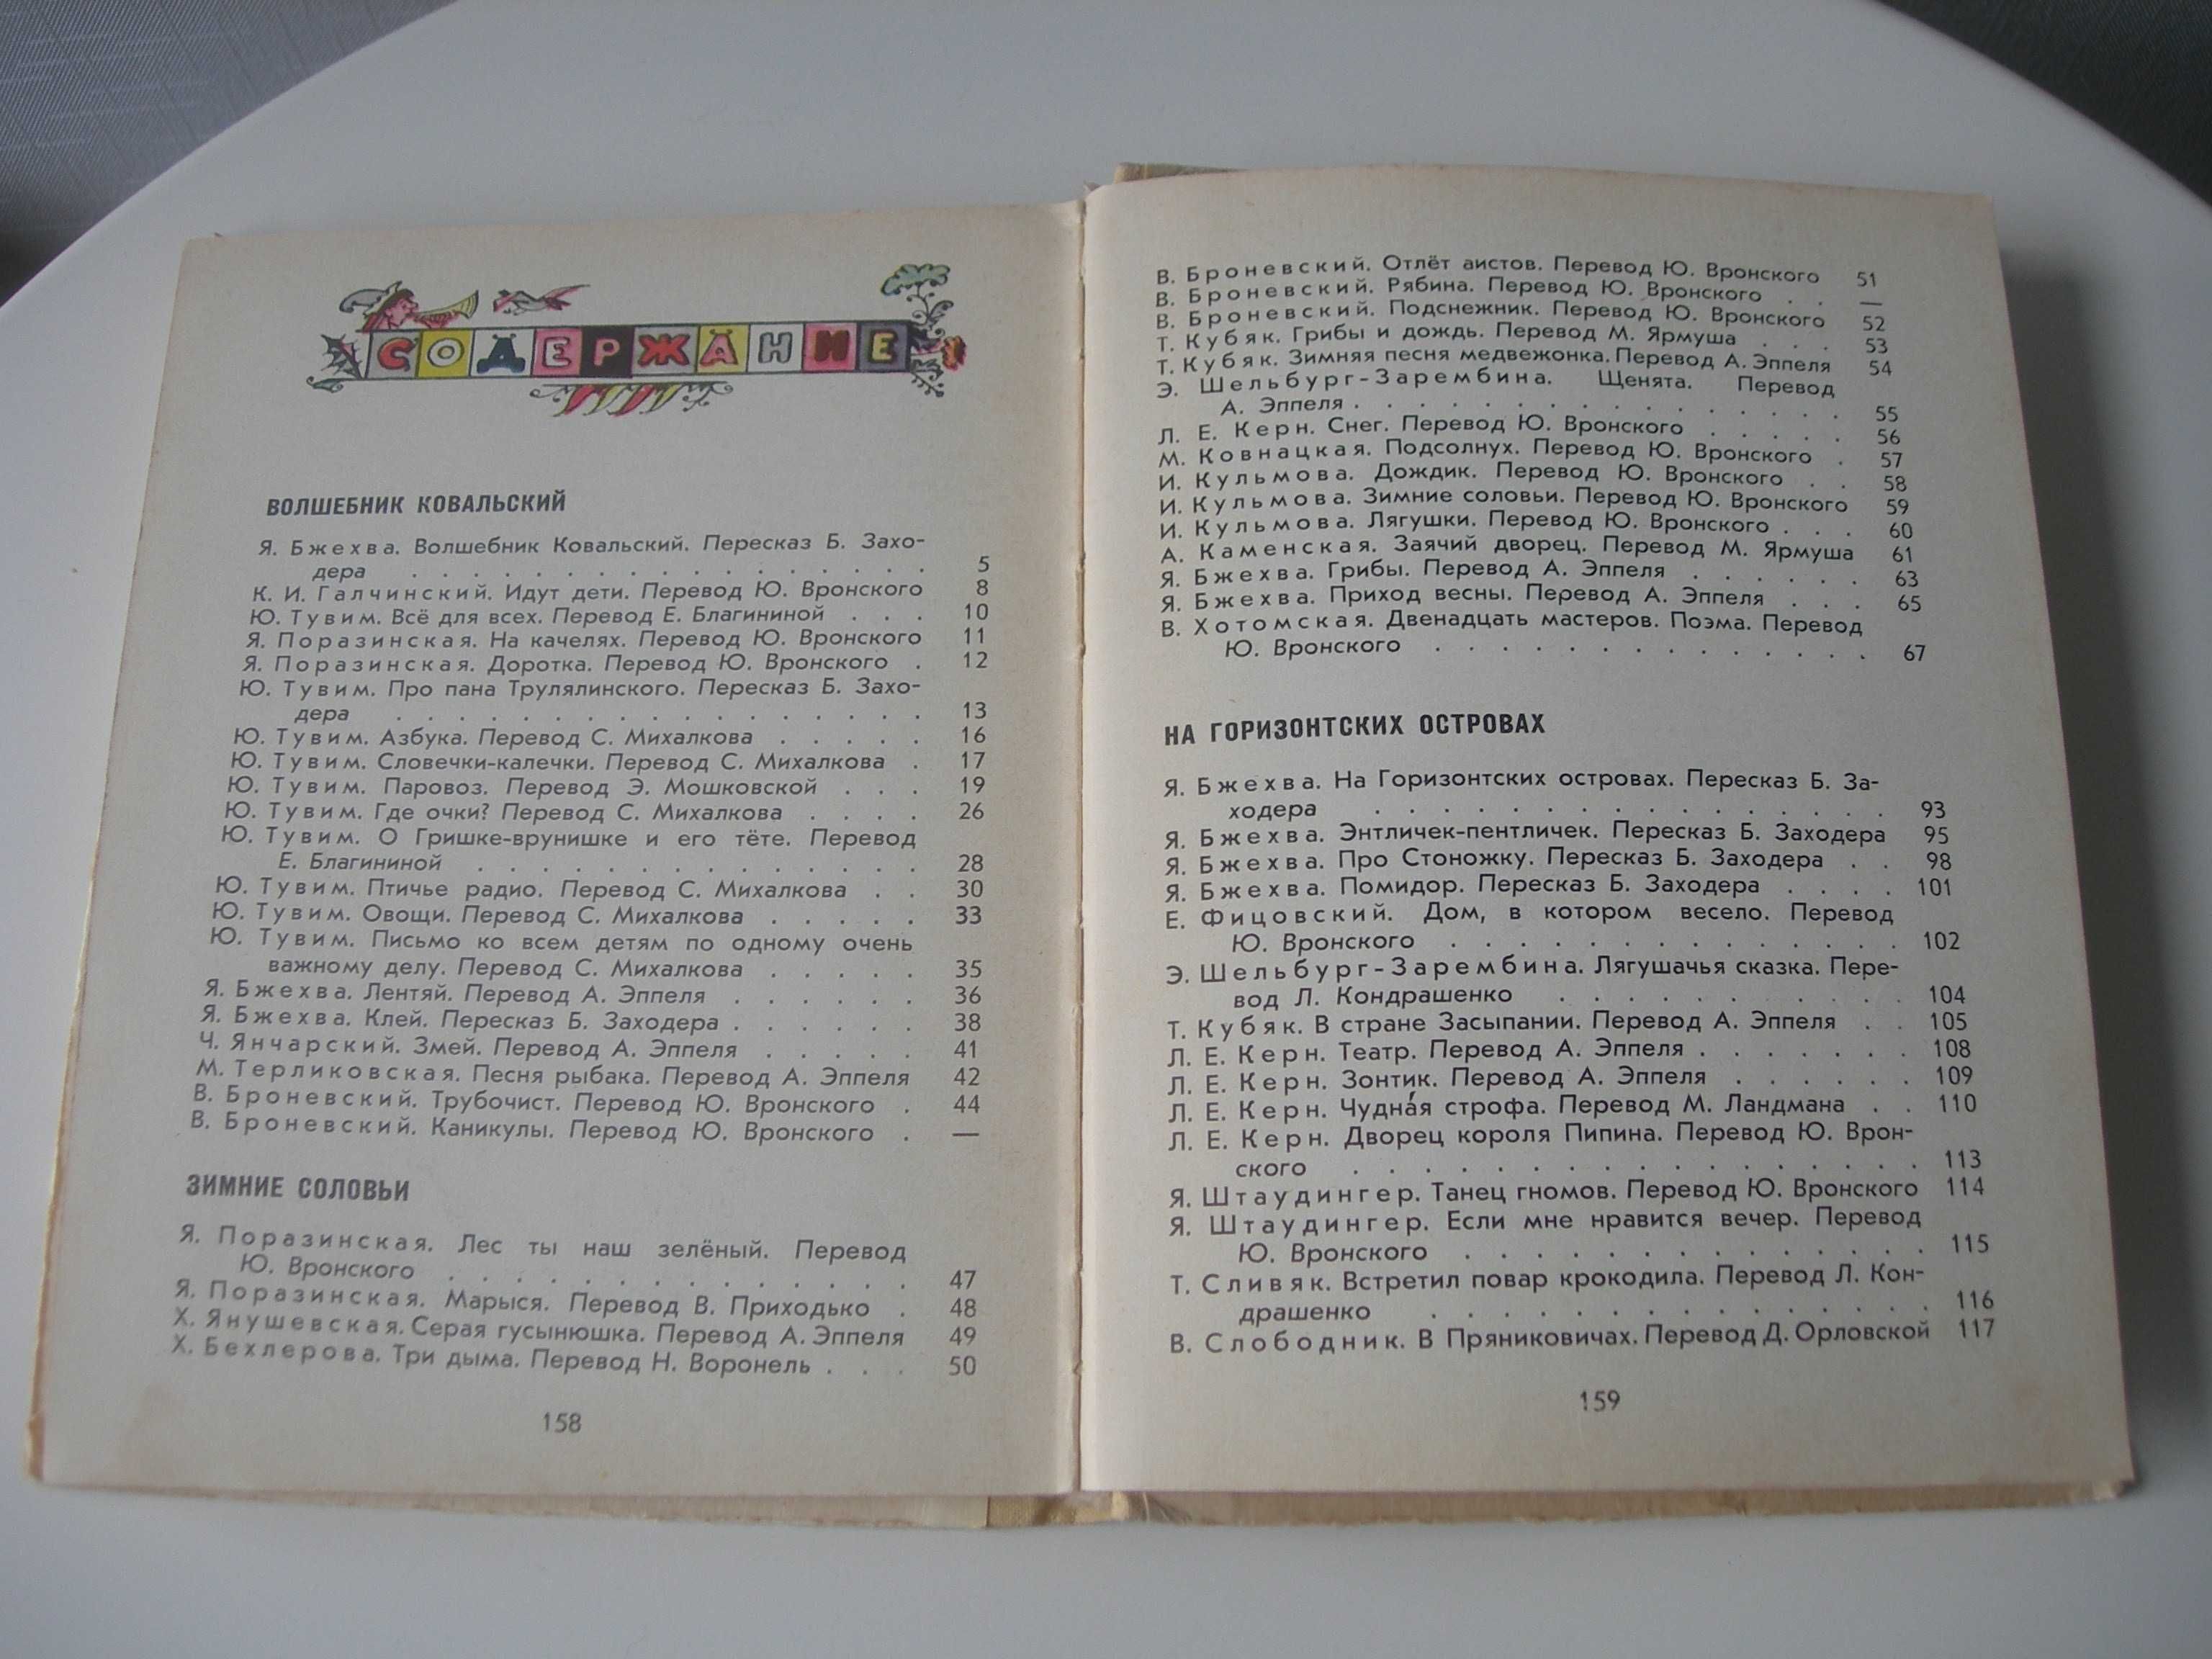 СОДЕРЖАНИЕ
ВОЛШЕБНИК КОВАЛЬСКИЙ
Я. Бжехва. Волшебник Ковальский. Пересказ Б. Захо-
дера . . . . . . . . . . . . . . . . . 5
К. И. Галчинский. Идут дети. Перевод Ю. Вронского 8
Ю. Тувим. Всё для всех. Перевод Е. Благининой . . . 10
Я. Поразинская. На качелях. Перевод Ю. Вронского 11
Я. Поразинская. Доротка. Перевод Ю. Вронского . 12
Ю. Тувим. Про пана Трулялинского. Пересказ Б. Захо-
дера . . . . . . . . . . . . . . . . . 13
Ю. Тувим. Азбука. Перевод С. Михалкова . . . . . 16
Ю. Тувим. Словечки-калечки. Перевод С. Михалкова . 17
Ю. Тувим. Паровоз. Перевод Э. Мошковской . . . 19
Ю. Тувим. Где очки? Перевод С. Михалкова . . . . 26
Ю. Тувим. О Гришке-врунишке и его тёте. Перевод
Е. Благининой . . . . . . . . . . . . . . 28
Ю. Тувим. Птичье радио. Перевод С. Михалкова . . 30
Ю. Тувим. Овощи. Перевод С. Михалкова . . . . . 33
Ю. Тувим. Письмо ко всем детям по одному очень
важному делу. Перевод С. Михалкова . . . . . 35
Я. Бжехва. Лентяй. Перевод А. Эппеля . . . . . . 36
Я. Бжехва. Клей. Пересказ Б. Заходера . . . . . . 38
Ч. Янчарский. Змей. Перевод А. Эппеля . . . . . 41
М. Терликовская. Песня рыбака. Перевод А. Эппеля 42
В. Броневский. Трубочист. Перевод Ю. Вронского . 44
В. Броневский. Каникулы. Перевод Ю. Вронского . —
ЗИМНИЕ СОЛОВЬИ
Я. Поразинская. Лес ты наш зелёный. Перевод
Ю. Вронского . . . . . . . . . . . . . . 47
Я. Поразинская. Марыся. Перевод В. Приходько . 48
Х. Янушевская. Серая гусынюшка. Перевод А. Эппеля 49
Х. Бехлерова. Три дыма. Перевод Н. Воронель . . . 50
158
В. Броневский. Отлёт аистов. Перевод Ю. Вронского 51
В. Броневский. Рябина. Перевод Ю. Вронского . . —
В. Броневский. Подснежник. Перевод Ю. Вронского 52
Т. Кубяк. Грибы и дождь. Перевод М. Ярмуша . . . 53
Т. Кубяк. Зимняя песня медвежонка. Перевод А. Эппеля 54
Э. Шельбург-Зарембина. Щенята. Перевод
А. Эппеля . . . . . . . . . . . . . . . . 55
Л. Е. Керн. Снег. Перевод Ю. Вронского . . . . . 56
М. Ковнацкая. Подсолнух. Перевод Ю. Вронского . 57
И. Кульмова. Дождик. Перевод Ю. Вронского . . 58
И. Кульмова. Зимние соловьи. Перевод Ю. Вронского 59
И. Кульмова. Лягушки. Перевод Ю. Вронского . . . 60
А. Каменская. Заячий дворец. Перевод М. Ярмуша 61
Я. Бжехва. Грибы. Перевод А. Эппеля . . . . . . 63
Я. Бжехва. Приход весны. Перевод А. Эппеля . . . 65
В. Хотомская. Двенадцать мастеров. Поэма. Перевод
Ю. Вронского . . . . . . . . . . . . . . 67
НА ГОРИЗОНТСКИХ ОСТРОВАХ
Я. Бжехва. На Горизонтских островах. Пересказ Б. За-
ходера . . . . . . . . . . . . . . . . 93
Я. Бжехва. Энтличек-пентличек. Пересказ Б. Заходера 95
Я. Бжехва. Про Стоножку. Пересказ Б. Заходера . . 98
Я. Бжехва. Помидор. Пересказ Б. Заходера . . . . 101
Е. Фицовский. Дом, в котором весело. Перевод
Ю. Вронского . . . . . . . . . . . . . . 102
Э. Шельбург-Зарембина. Лягушачья сказка. Пере-
вод Л. Кондрашенко . . . . . . . . . . . 104
Т. Кубяк. В стране Засыпании. Перевод А. Эппеля . . 105
Л. Е. Керн. Театр. Перевод А. Эппеля . . . . . . . 108
Л. Е. Керн. Зонтик. Перевод А. Эппеля . . . . . . 109
Л. Е. Керн. Чудна́я строфа. Перевод М. Ландмана . . 110
Л. Е. Керн. Дворец короля Пипина. Перевод Ю. Врон-
ского . . . . . . . . . . . . . . . . . 113
Я. Штаудингер. Танец гномов. Перевод Ю. Вронского 114
Я. Штаудингер. Если мне нравится вечер. Перевод
Ю. Вронского . . . . . . . . . . . . . . 115
Т. Сливяк. Встретил повар крокодила. Перевод Л. Кон-
драшенко . . . . . . . . . . . . . . . 116
В. Слободник. В Пряниковичах. Перевод Д. Орловской 117
159